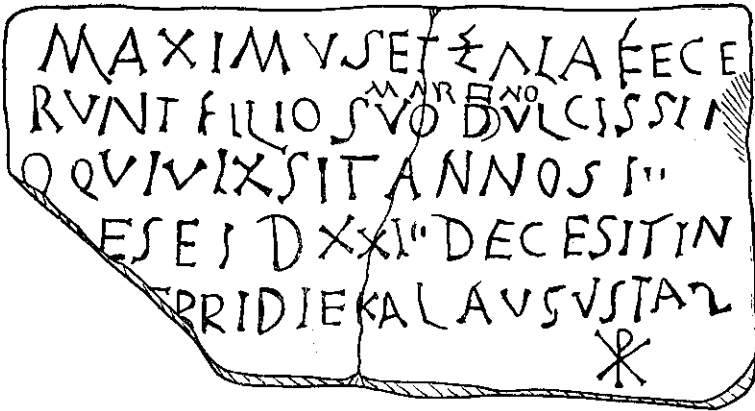 MAXIMVS ET FECE
MARENO
RVNT FILIO SVO DVLCISSIM
O QVI VIXSIT ANNOS III
ESES D XXIII DECESIT IN
E PRIDIE KAL AVGVSTAS